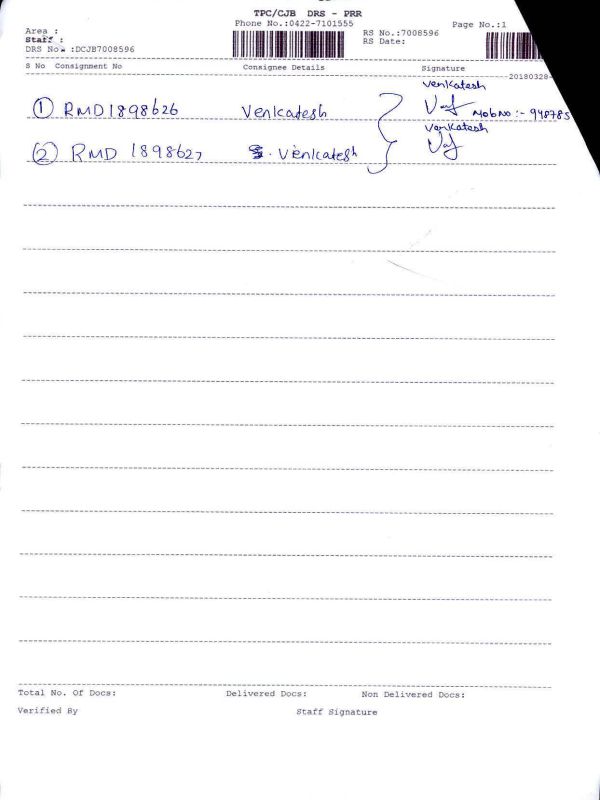 TPC/CJB DRS - PRR
Phone No.:0422-7101555
Page No.:1
Area :
RS No.:7008596
Staff :
RS Date:
DRS No. :DCJB7008596
S No Consignment No Consignee Details Signature
20180328-
Venkatesh
1 RMD1898626 Venkatesh Mob No :- 948785
Venkatesh
2 RMD 1898627 S. Venkatesh
Total No. Of Docs: Delivered Docs: Non Delivered Docs:
Verified By Staff Signature